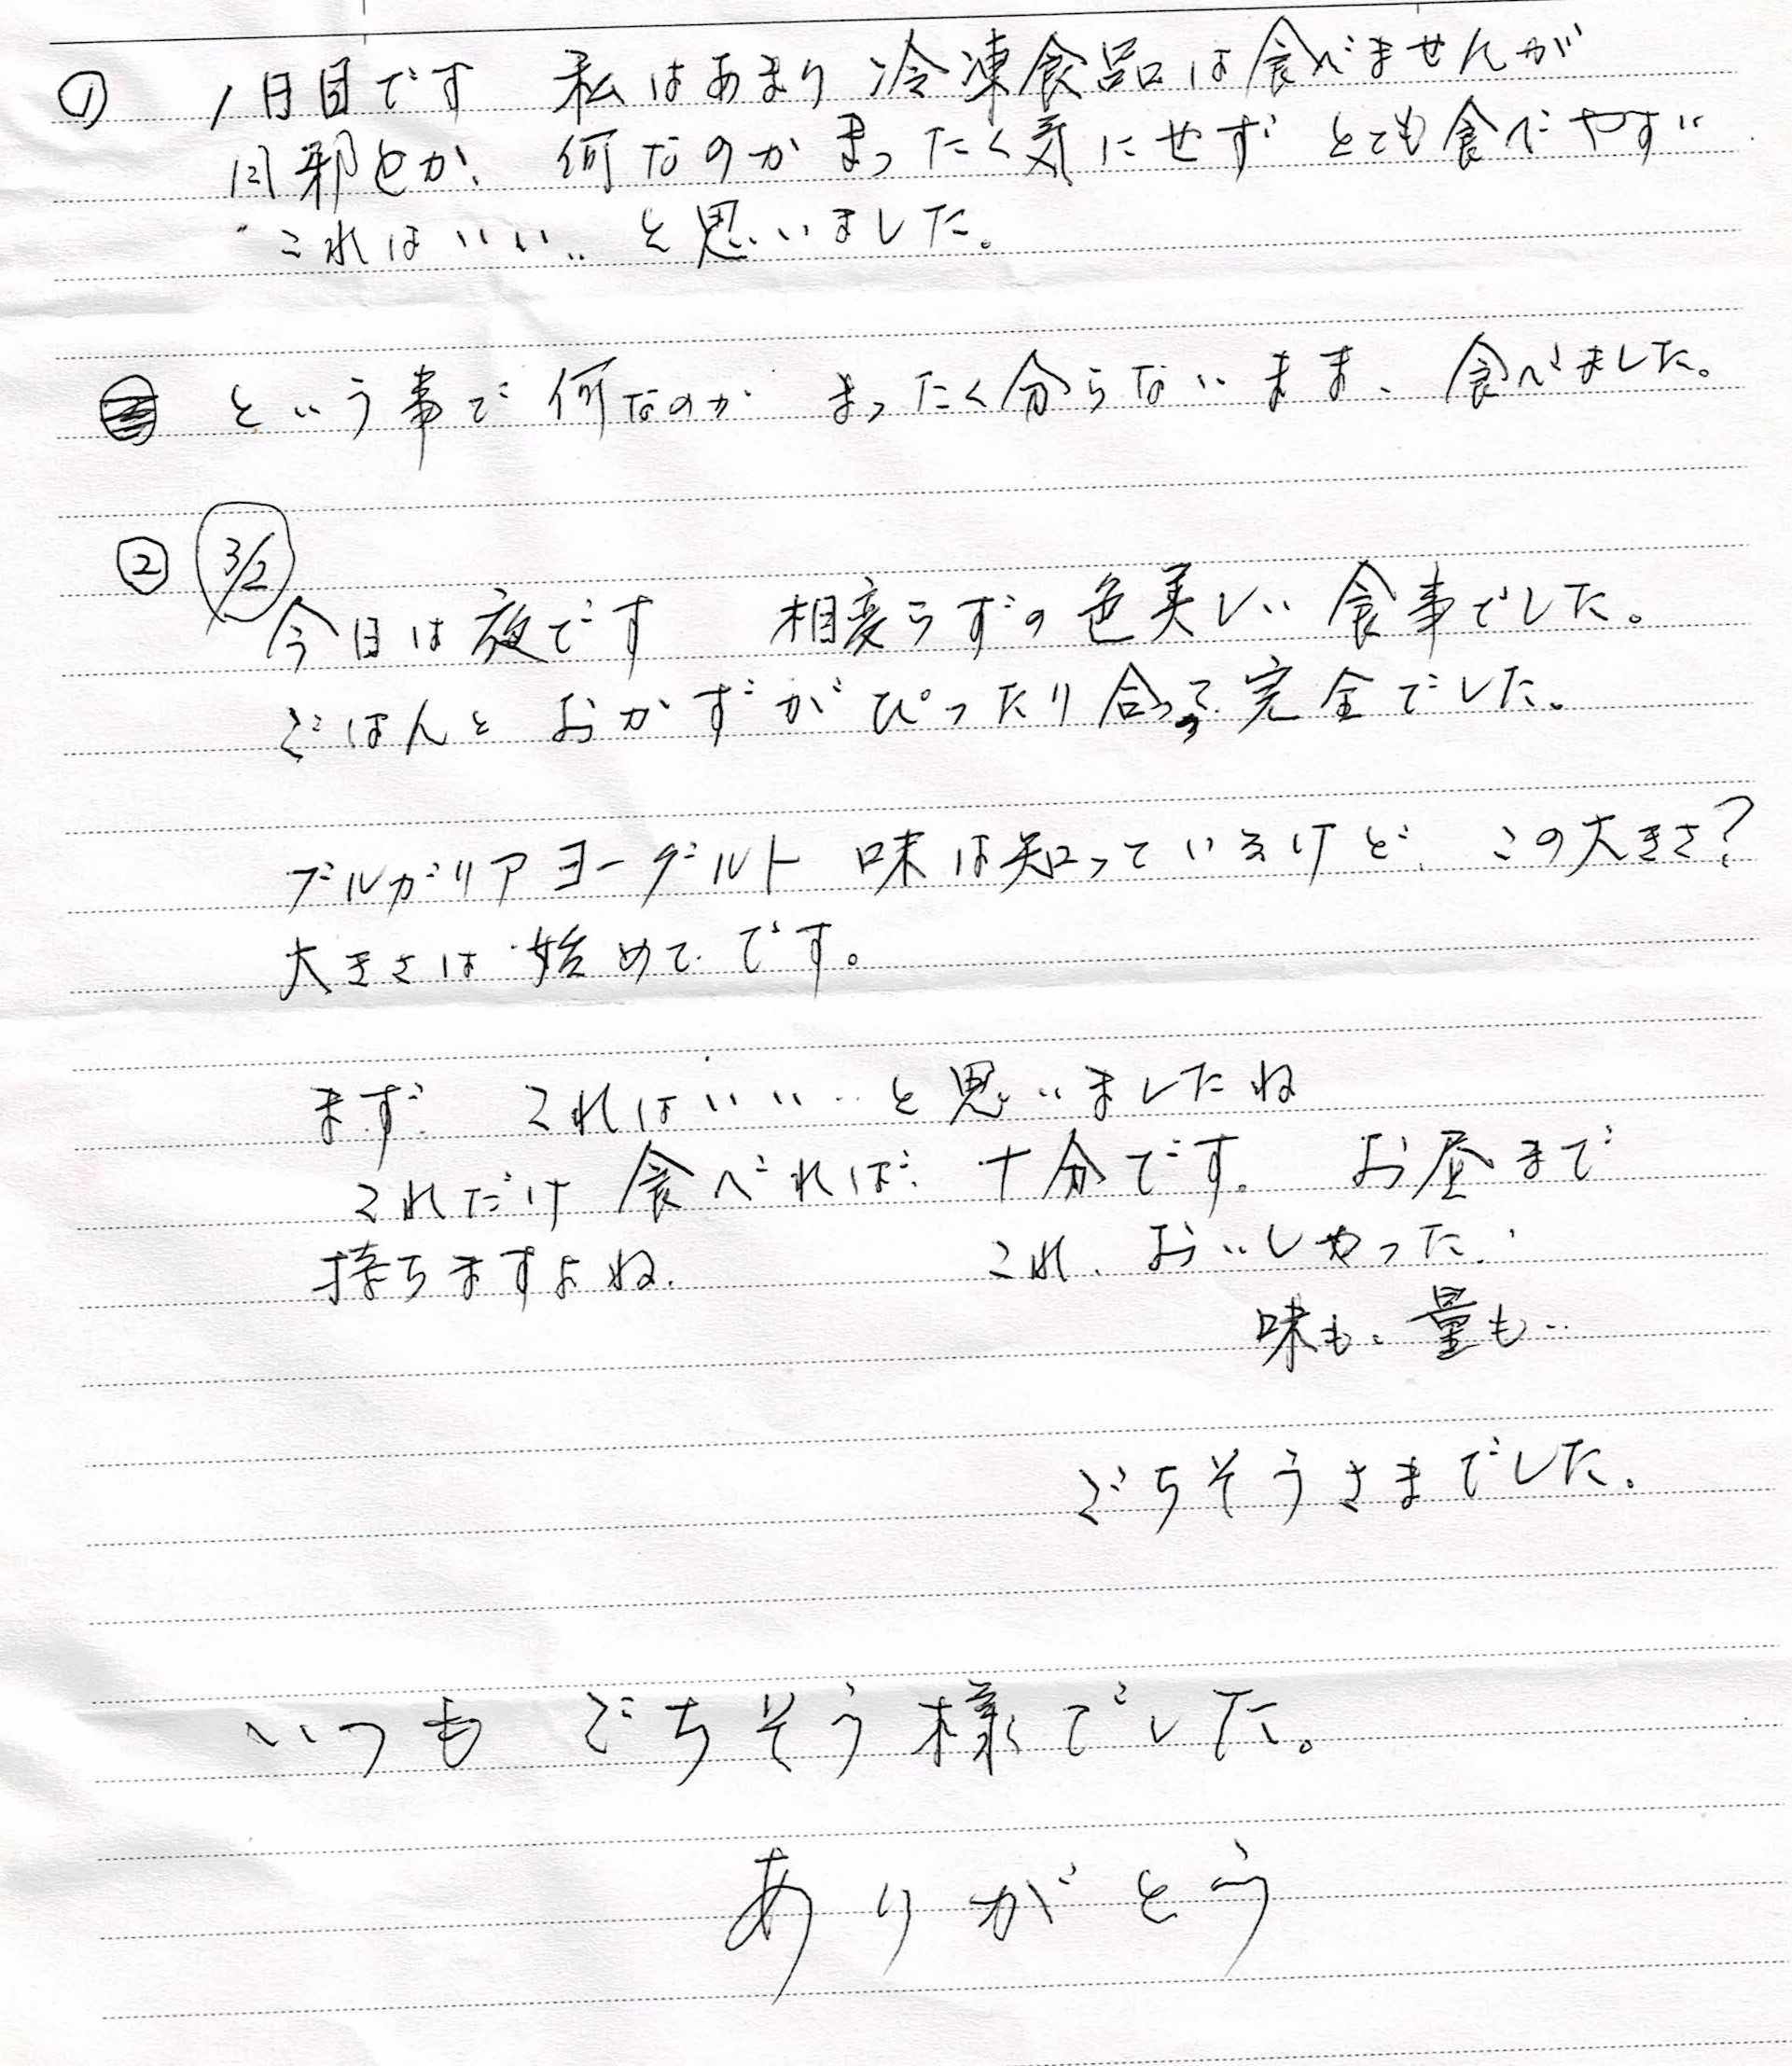 ① 1日目です 私はあまり冷凍食品は食べませんが
何なのかまったく気にせず とても食べやすい
これはいい‥と思いました。
という事で何なのか まったく分らないまま、食べました。
② 3/2
今日は夜です 相変らずの色美しい食事でした。
ごはんと おかずがぴったり合って完全でした。
ブルガリアヨーグルト 味は知っているけど、この大きさ?
大きさは始めてです。
まず これはいい‥と思いましたね
これだけ食べれば 十分です。 お昼まで
持ちますよね。 これ、おいしかった。
味も、量も‥
ごちそうさまでした。
いつも ごちそう様でした。
ありがとう